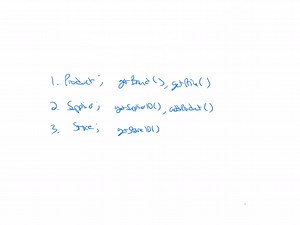 1. Product; getBrand(), getPrice()
2. Supplier; getSupplierID(), addProduct()
3. Store; getStoreID()